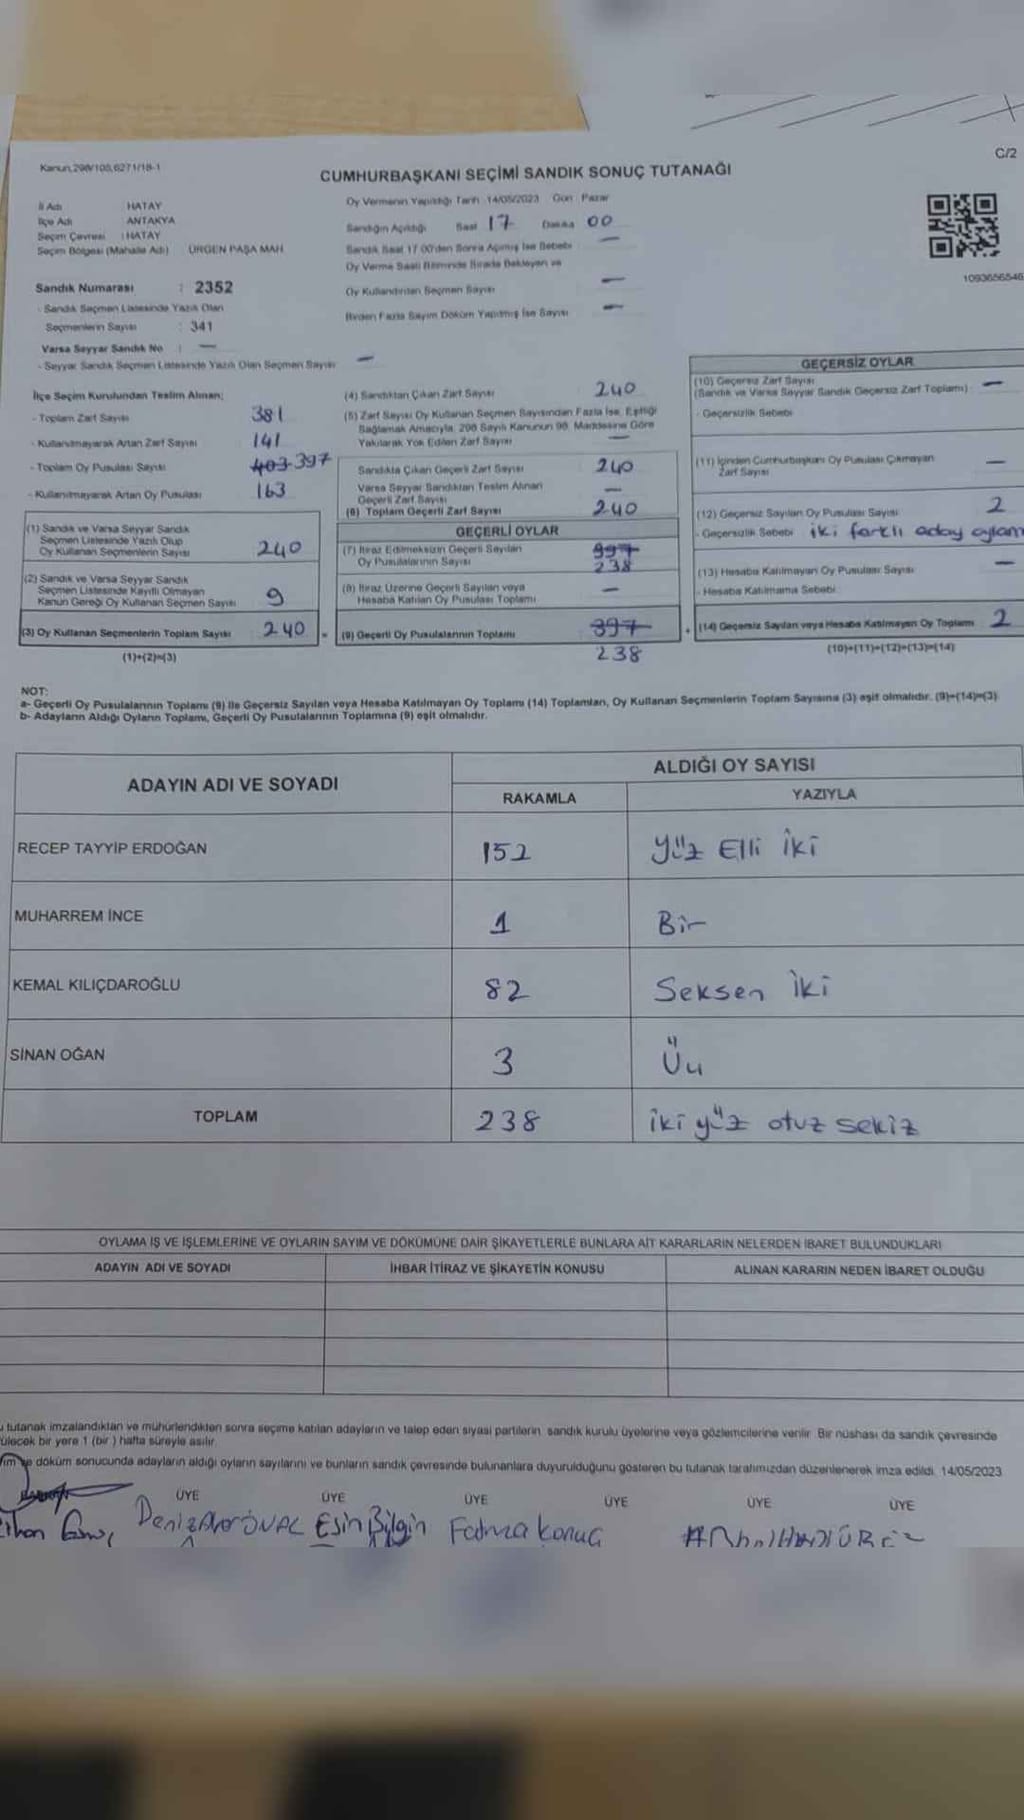 Kanun,298/105,6271/18-1
C/2
CUMHURBAŞKANI SEÇİMİ SANDIK SONUÇ TUTANAĞI
İl Adı HATAY
İlçe Adı ANTAKYA
Seçim Çevresi : HATAY
Seçim Bölgesi (Mahalle Adı) ÜRGEN PAŞA MAH
Oy Vermenin Yapıldığı Tarih 14/05/2023 Gün Pazar
Sandığın Açıldığı Saat 17 Dakika 00
Sandık Saat 17.00'den Sonra Açılmış İse Sebebi —
Oy Verme Saati Bitiminde Sırada Bekleyen ve
Oy Kullandırılan Seçmen Sayısı —
Birden Fazla Sayım Döküm Yapılmış İse Sayısı —
1093656546
Sandık Numarası : 2352
- Sandık Seçmen Listesinde Yazılı Olan
Seçmenlerin Sayısı : 341
Varsa Seyyar Sandık No : —
- Seyyar Sandık Seçmen Listesinde Yazılı Olan Seçmen Sayısı —
İlçe Seçim Kurulundan Teslim Alınan;
- Toplam Zarf Sayısı 381
- Kullanılmayarak Artan Zarf Sayısı 141
- Toplam Oy Pusulası Sayısı 403 397
- Kullanılmayarak Artan Oy Pusulası 163
(1) Sandık ve Varsa Seyyar Sandık
Seçmen Listesinde Yazılı Olup
Oy Kullanan Seçmenlerin Sayısı 240
(2) Sandık ve Varsa Seyyar Sandık
Seçmen Listesinde Kayıtlı Olmayan
Kanun Gereği Oy Kullanan Seçmen Sayısı 9
(3) Oy Kullanan Seçmenlerin Toplam Sayısı 240
(1)+(2)=(3)
(4) Sandıktan Çıkan Zarf Sayısı 240
(5) Zarf Sayısı Oy Kullanan Seçmen Sayısından Fazla İse, Eşitliği
Sağlamak Amacıyla, 298 Sayılı Kanunun 98. Maddesine Göre
Yakılarak Yok Edilen Zarf Sayısı —
Sandıkta Çıkan Geçerli Zarf Sayısı 240
Varsa Seyyar Sandıktan Teslim Alınan
Geçerli Zarf Sayısı —
(6) Toplam Geçerli Zarf Sayısı 240
GEÇERLİ OYLAR
(7) İtiraz Edilmeksizin Geçerli Sayılan 397
Oy Pusulalarının Sayısı 238
(8) İtiraz Üzerine Geçerli Sayılan veya
Hesaba Katılan Oy Pusulası Toplamı —
= (9) Geçerli Oy Pusulalarının Toplamı 397
238
GEÇERSİZ OYLAR
(10) Geçersiz Zarf Sayısı
(Sandık ve Varsa Seyyar Sandık Geçersiz Zarf Toplamı) : —
- Geçersizlik Sebebi
(11) İçinden Cumhurbaşkanı Oy Pusulası Çıkmayan
Zarf Sayısı —
(12) Geçersiz Sayılan Oy Pusulası Sayısı 2
- Geçersizlik Sebebi iki farklı aday oylam
(13) Hesaba Katılmayan Oy Pusulası Sayısı —
- Hesaba Katılmama Sebebi
+ (14) Geçersiz Sayılan veya Hesaba Katılmayan Oy Toplamı 2
(10)+(11)+(12)+(13)=(14)
NOT:
a- Geçerli Oy Pusulalarının Toplamı (9) ile Geçersiz Sayılan veya Hesaba Katılmayan Oy Toplamı (14) Toplamları, Oy Kullanan Seçmenlerin Toplam Sayısına (3) eşit olmalıdır. (9)+(14)=(3)
b- Adayların Aldığı Oyların Toplamı, Geçerli Oy Pusulalarının Toplamına (9) eşit olmalıdır.
ADAYIN ADI VE SOYADI ALDIĞI OY SAYISI
RAKAMLA YAZIYLA
RECEP TAYYİP ERDOĞAN 152 Yüz Elli İki
MUHARREM İNCE 1 Bir
KEMAL KILIÇDAROĞLU 82 Seksen İki
SİNAN OĞAN 3 Üç
TOPLAM 238 iki yüz otuz sekiz
OYLAMA İŞ VE İŞLEMLERİNE VE OYLARIN SAYIM VE DÖKÜMÜNE DAİR ŞİKAYETLERLE BUNLARA AİT KARARLARIN NELERDEN İBARET BULUNDUKLARI
ADAYIN ADI VE SOYADI İHBAR İTİRAZ VE ŞİKAYETİN KONUSU ALINAN KARARIN NEDEN İBARET OLDUĞU
u tutanak imzalandıktan ve mühürlendikten sonra seçime katılan adayların ve talep eden siyasi partilerin sandık kurulu üyelerine veya gözlemcilerine verilir. Bir nüshası da sandık çevresinde
ülecek bir yere 1 (bir ) hafta süreyle asılır.
ım ve döküm sonucunda adayların aldığı oyların sayılarını ve bunların sandık çevresinde bulunanlara duyurulduğunu gösteren bu tutanak tarafımızdan düzenlenerek imza edildi. 14/05/2023
ÜYE ÜYE ÜYE ÜYE ÜYE ÜYE
Esin Bilgin Fatma Konuç